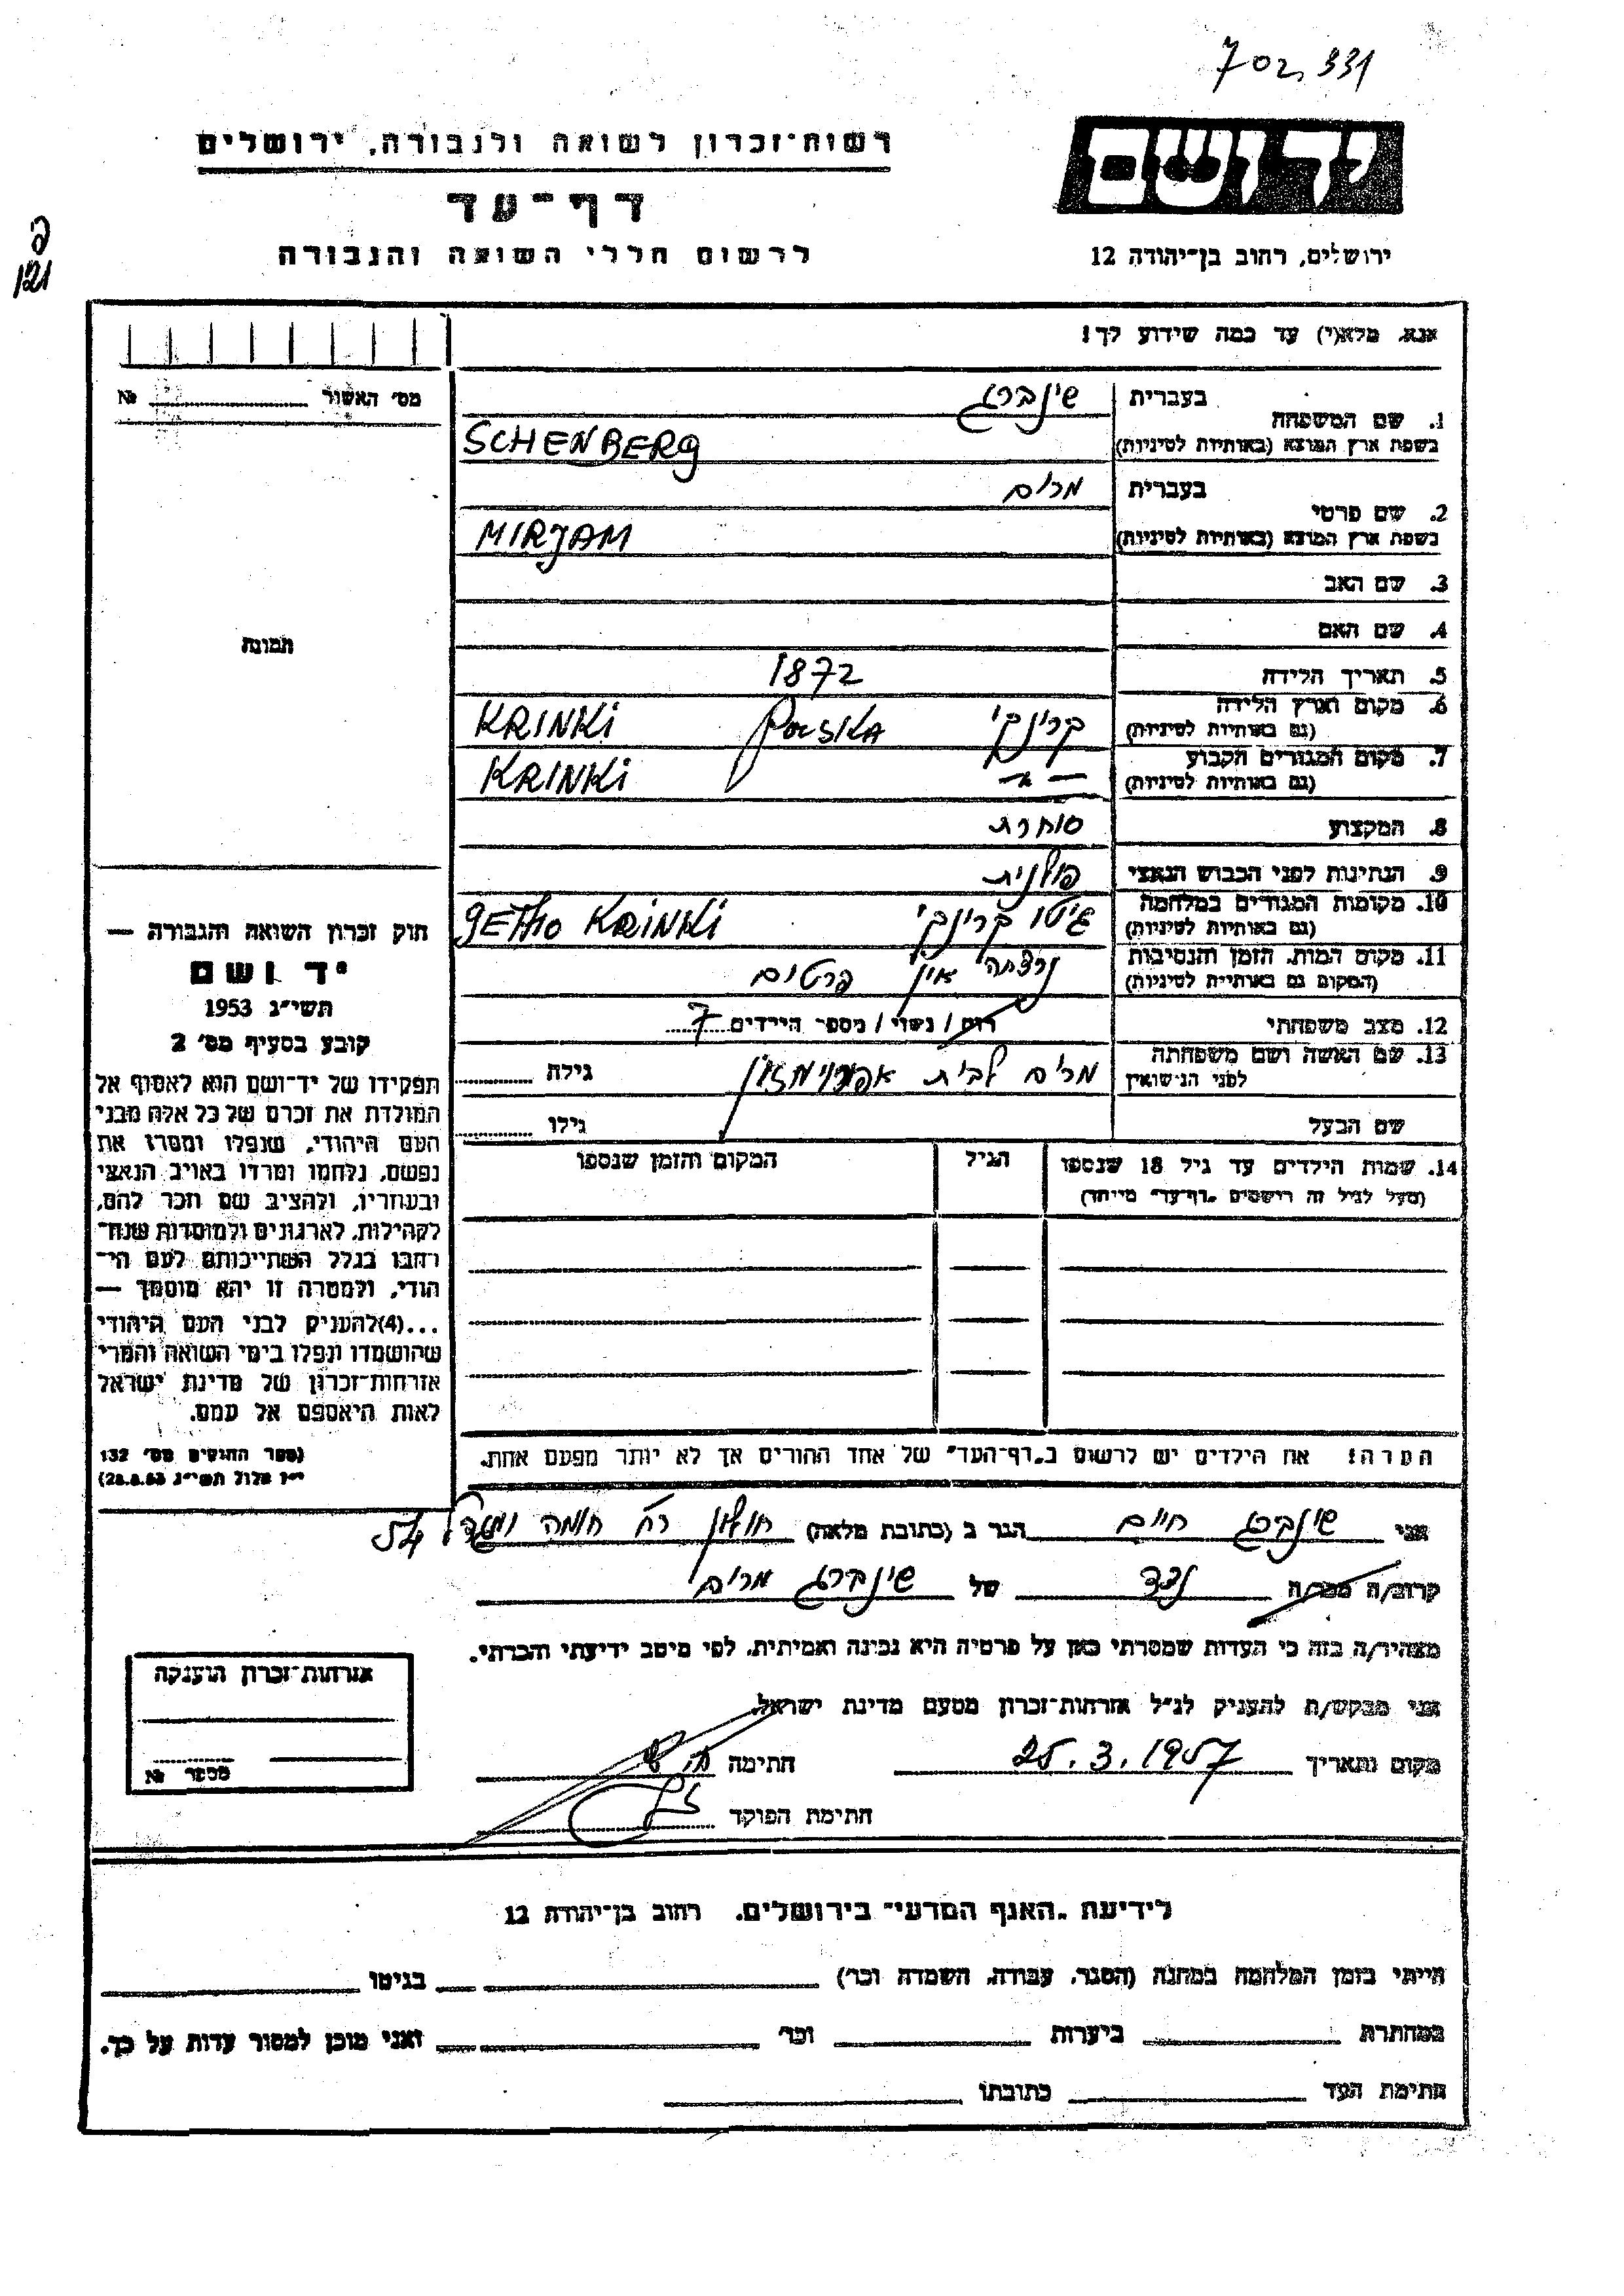 702,331
רשות־זכרון לשואה ולגבורה, ירושלים
יד ושם
דף־עד
ירושלים, רחוב בן־יהודה 12
לרשום חללי השואה והגבורה
פ
121
אנא, מלא(י) עד כמה שידוע לך!
מס׳ האשור № 
1. שם המשפחה
בעברית שינברג
בשפת ארץ המוצא (באותיות לטיניות) SCHENBERG
2. שם פרטי
בעברית מרים
בשפת ארץ המוצא (באותיות לטיניות) MIRJAM
3. שם האב
4. שם האם
תמונה
5. תאריך הלידה 1872
6. מקום וארץ הלידה
(גם באותיות לטיניות) קרינקי POLSKA KRINKI
7. מקום המגורים הקבוע
(גם באותיות לטיניות) — " — KRINKI
8. המקצוע סוחרת
9. הנתינות לפני הכבוש הנאצי פולנית
10. מקומות המגורים במלחמה
(גם באותיות לטיניות) גיטו קרינקי GETHO KRINKI
11. מקום המות, הזמן והנסיבות
(המקום גם באותיות לטיניות) נרצחה אין פרטים
12. מצב משפחתי רוק / נשוי / מספר הילדים 7
13. שם האשה ושם משפחתה
לפני הנישואין מרים לבית גילה
שם הבעל גילו
14. שמות הילדים עד גיל 18 שנספו
(מעל לגיל זה רושמים „דף־עד" מיוחד)
הגיל
המקום והזמן שנספו
הערה! את הילדים יש לרשום ב„דף־העד" של אחד ההורים אך לא יותר מפעם אחת.
חוק זכרון השואה והגבורה —
יד ושם
תשי״ג 1953
קובע בסעיף מס׳ 2
תפקידו של יד־ושם הוא לאסוף אל
המולדת את זכרם של כל אלה מבני
העם היהודי, שנפלו ומסרו את
נפשם, נלחמו ומרדו באויב הנאצי
ובעוזריו, ולהציב שם וזכר להם,
לקהילות, לארגונים ולמוסדות שנח־
רבו בגלל השתייכותם לעם הי־
הודי, ולמטרה זו יהא מוסמך —
...(4)להעניק לבני העם היהודי
שהושמדו ונפלו בימי השואה והמרי
אזרחות־זכרון של מדינת ישראל
לאות היאספם אל עמם.
(ספר החוקים מס׳ 132
י״ז אלול תשי״ג 28.8.53)
אני שינברג חיים הגר ב (כתובת מלאה) חולון רח׳ חומה ומגדל 54
קרוב/ה מכר/ה נכד של שינברג מרים
מצהיר/ה בזה כי העדות שמסרתי כאן על פרטיה היא נכונה ואמיתית, לפי מיטב ידיעתי והכרתי.
אני מבקש/ת להעניק לנ״ל אזרחות־זכרון מטעם מדינת ישראל.
מקום ותאריך 25.3.1957 חתימה
חתימת הפוקד
אזרחות־זכרון הוענקה
מספר №
לידיעת „האגף המדעי" בירושלים, רחוב בן־יהודה 12
הייתי בזמן המלחמה במחנה (הסגר, עבודה, השמדה וכו׳) בגיטו
במחתרת ביערות וכו׳ ואני מוכן למסור עדות על כך.
חתימת העד כתובתו